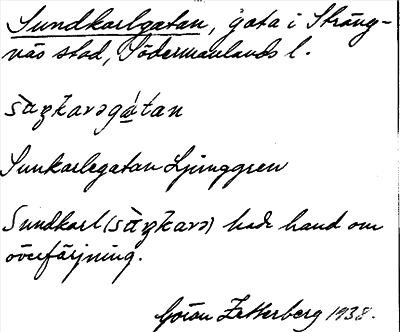 Sundkarlgatan, gata i Sträng-
näs stad, Södermanlands l.
Sunkarlegatan Ljunggren
Sundkarl hade hand om
överfärjning.
Göran Zetterberg 1938.